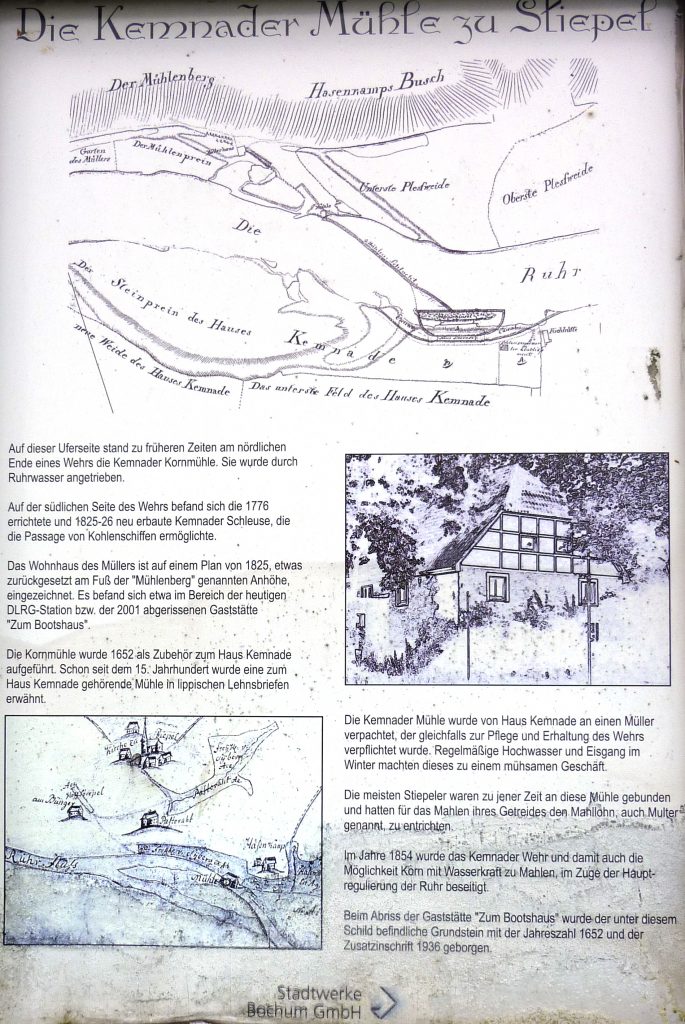 Die Kemnader Mühle zu Stiepel
Der Mühlenberg
Hasenkamps Busch
Garten
des Müllers
Der Mühlenprein
Unterste Plesweide
Oberste Plesweide
Die
Ruhr
Der
Steinprein des Hauses
Kemnade
neue Weide des Hauses Kemnade
Das unterste Feld des Hauses Kemnade
Auf dieser Uferseite stand zu früheren Zeiten am nördlichen
Ende eines Wehrs die Kemnader Kornmühle. Sie wurde durch
Ruhrwasser angetrieben.
Auf der südlichen Seite des Wehrs befand sich die 1776
errichtete und 1825-26 neu erbaute Kemnader Schleuse, die
die Passage von Kohlenschiffen ermöglichte.
Das Wohnhaus des Müllers ist auf einem Plan von 1825, etwas
zurückgesetzt am Fuß der "Mühlenberg" genannten Anhöhe,
eingezeichnet. Es befand sich etwa im Bereich der heutigen
DLRG-Station bzw. der 2001 abgerissenen Gaststätte
"Zum Bootshaus".
Die Kornmühle wurde 1652 als Zubehör zum Haus Kemnade
aufgeführt. Schon seit dem 15. Jahrhundert wurde eine zum
Haus Kemnade gehörende Mühle in lippischen Lehnsbriefen
erwähnt.
Kirche zu Stiepel
Ruhr Fluss
Mühle
Die Kemnader Mühle wurde von Haus Kemnade an einen Müller
verpachtet, der gleichfalls zur Pflege und Erhaltung des Wehrs
verpflichtet wurde. Regelmäßige Hochwasser und Eisgang im
Winter machten dieses zu einem mühsamen Geschäft.
Die meisten Stiepeler waren zu jener Zeit an diese Mühle gebunden
und hatten für das Mahlen ihres Getreides den Mahllohn, auch Multer
genannt, zu entrichten.
Im Jahre 1854 wurde das Kemnader Wehr und damit auch die
Möglichkeit Korn mit Wasserkraft zu Mahlen, im Zuge der Haupt-
regulierung der Ruhr beseitigt.
Beim Abriss der Gaststätte "Zum Bootshaus" wurde der unter diesem
Schild befindliche Grundstein mit der Jahreszahl 1652 und der
Zusatzinschrift 1936 geborgen.
Stadtwerke
Bochum GmbH